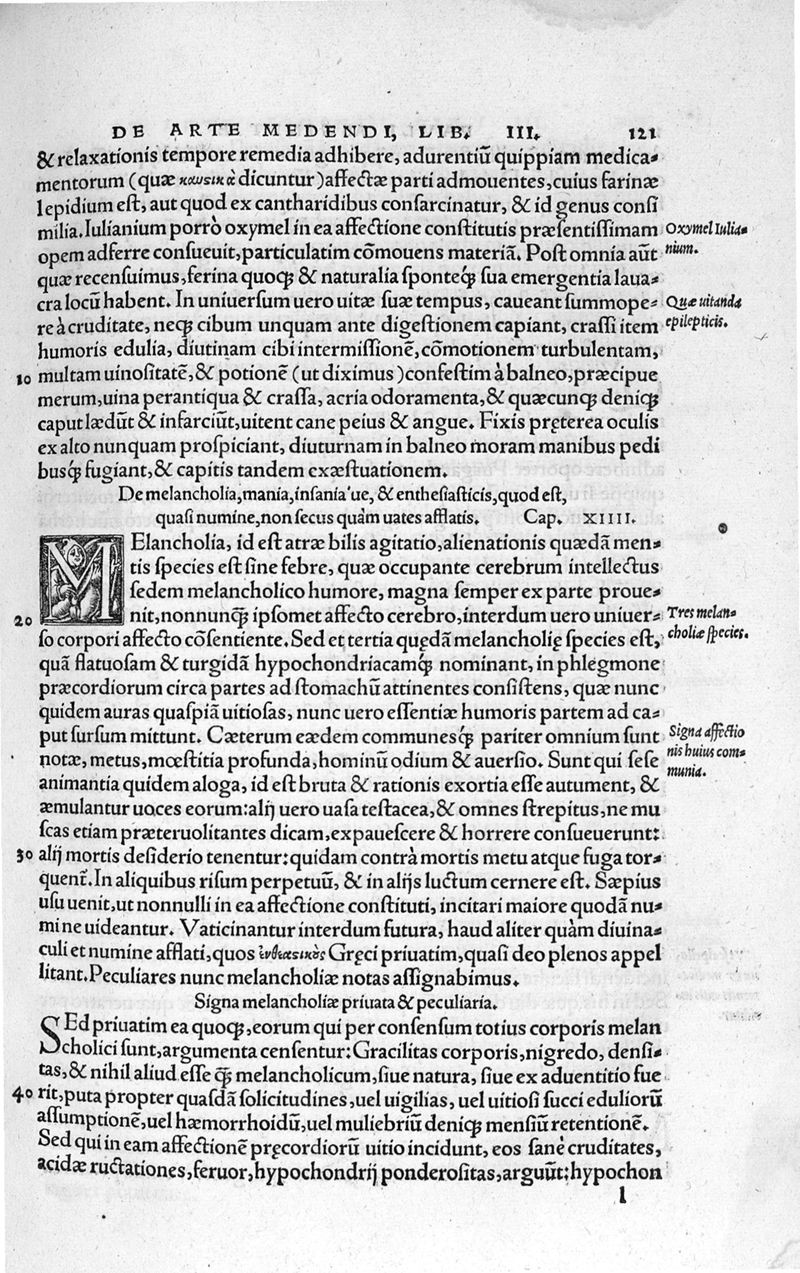 DE ARTE MEDENDI, LIB. III. 121
& relaxationis tempore remedia adhibere, adurentiũ quippiam medica-
mentorum (quæ καυσικὰ dicuntur) affectæ parti admouentes, cuius farinæ
lepidium est, aut quod ex cantharidibus consarcinatur, & id genus consi
milia. Iulianium porrò oxymel in ea affectione constitutis præsentissimam
Oxymel Iulia-
opem adferre consueuit, particulatim cõmouens materiã. Post omnia aũt
nium.
quæ recensuimus, ferina quoqꝫ & naturalia sponteqꝫ́ sua emergentia laua-
cra locũ habent. In uniuersum uero uitæ suæ tempus, caueant summope-
Quæ uitanda
re à cruditate, neqꝫ cibum unquam ante digestionem capiant, crassi item
epilepticis.
humoris edulia, diutinam cibi intermissionẽ, cõmotionem turbulentam,
10 multam uinositatẽ, & potionẽ (ut diximus) confestim à balneo, præcipue
merum, uina perantiqua & crassa, acria odoramenta, & quæcunqꝫ deniqꝫ
caput lædũt & infarciũt, uitent cane peius & angue. Fixis pręterea oculis
ex alto nunquam prospiciant, diuturnam in balneo moram manibus pedi
busqꝫ́ fugiant, & capitis tandem exæstuationem.
De melancholia, mania, insania'ue, & enthesiasticis, quod est,
quasi numine, non secus quàm uates afflatis. Cap. XIIII.
MElancholia, id est atræ bilis agitatio, alienationis quædã men-
tis species est sine febre, quæ occupante cerebrum intellectus
sedem melancholico humore, magna semper ex parte proue-
20 nit, nonnunqꝫ̃ ipsomet affecto cerebro, interdum uero uniuer-
Tres melan-
so corpori affecto cõsentiente. Sed et tertia quędã melancholię species est,
choliæ species.
quã flatuosam & turgidã hypochondriacamqꝫ́ nominant, in phlegmone
præcordiorum circa partes ad stomachũ attinentes consistens, quæ nunc
quidem auras quaspiã uitiosas, nunc uero essentiæ humoris partem ad ca-
put sursum mittunt. Cæterum eædem communesqꝫ́ pariter omnium sunt
Signa affectio
notæ, metus, mœstitia profunda, hominũ odium & auersio. Sunt qui sese
nis huius com-
animantia quidem aloga, id est bruta & rationis exortia esse autument, &
munia.
æmulantur uoces eorum: alij uero uasa testacea, & omnes strepitus, ne mu
scas etiam præteruolitantes dicam, expauescere & horrere consueuerunt:
30 alij mortis desiderio tenentur: quidam contrà mortis metu atque fuga tor-
quent̃. In aliquibus risum perpetuũ, & in alijs luctum cernere est. Sæpius
usu uenit, ut nonnulli in ea affectione constituti, incitari maiore quodã nu-
mine uideantur. Vaticinantur interdum futura, haud aliter quàm diuina-
culi et numine afflati, quos ἐνθεασικοὺς Gręci priuatim, quasi deo plenos appel
litant. Peculiares nunc melancholiæ notas assignabimus.
Signa melancholiæ priuata & peculiaria.
SEd priuatim ea quoqꝫ, eorum qui per consensum totius corporis melan
cholici sunt, argumenta censentur: Gracilitas corporis, nigredo, densi-
tas, & nihil aliud esse qꝫ̃ melancholicum, siue natura, siue ex aduentitio fue
40 rit, puta propter quasdã solicitudines, uel uigilias, uel uitiosi succi eduliorũ
assumptionẽ, uel hæmorrhoidũ, uel muliebriũ deniqꝫ mensiũ retentionẽ.
Sed qui in eam affectionẽ pręcordiorũ uitio incidunt, eos sanè cruditates,
acidæ ructationes, feruor, hypochondrij ponderositas, arguũt: hypochon
l